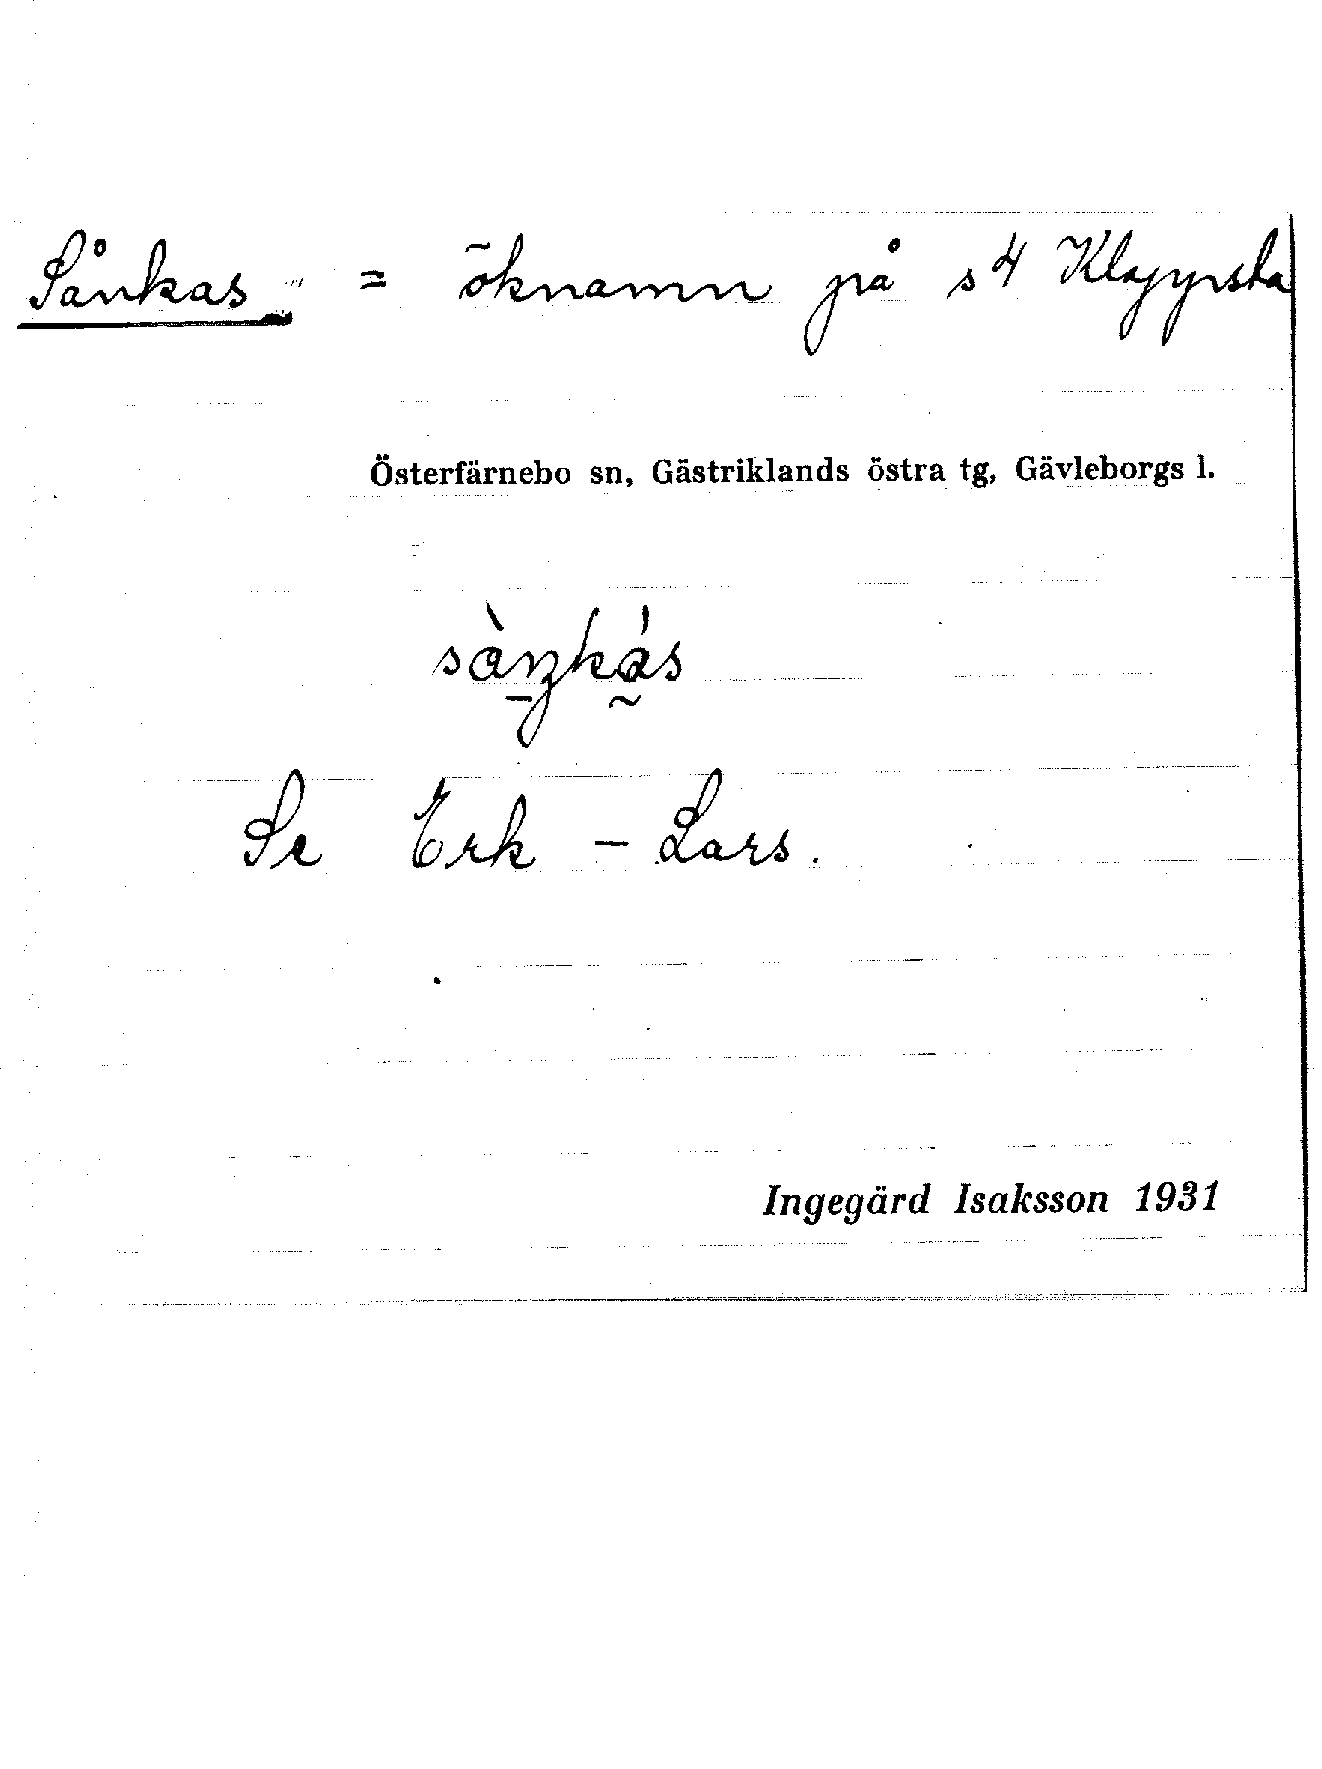 Sånkas = öknamn på s4 Klappsta
Österfärnebo sn, Gästriklands östra tg, Gävleborgs l.
sàŋkás
Se Erk - Lars.
Ingegärd Isaksson 1931